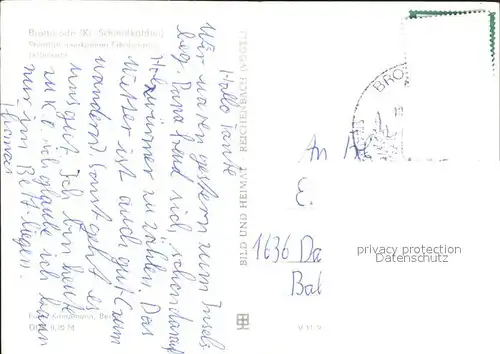 Brotterode (Kr. Schmalkalden)
Hallo Tante
Wir waren gestern zum Insels
berg. Papa freud sich, schon darauf
Holzwürmer zu zählen. Das
Wetter ist auch gut (zum
wandern). Sonst geht es
uns gut. Ich bin heute
zu K.O. ich glaube ich kann
nur im Bett liegen.
Thomas
BILD UND HEIMAT REICHENBACH (VOGTL)
BRO
An
E.
1636 Da
Bal
privacy protection
Datenschutz
V 11